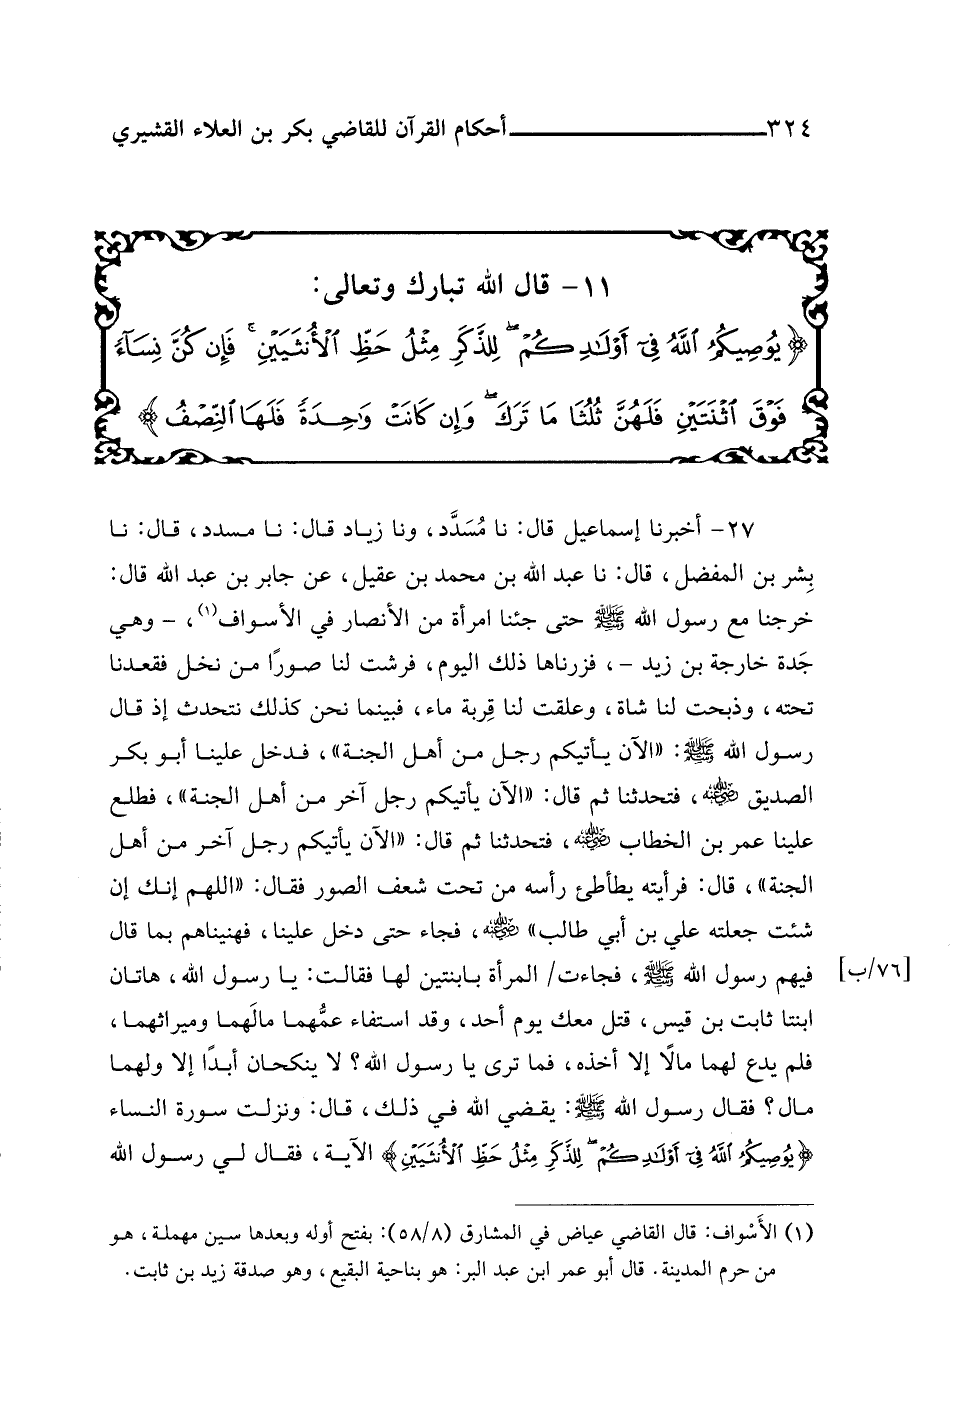 ٣٢٤ أحكام القرآن للقاضي بكر بن العلاء القشيري
١١- قال الله تبارك وتعالى:
﴿يُوصِيكُمُ ٱللَّهُ فِىٓ أَوْلَٰدِكُمْ ۖ لِلذَّكَرِ مِثْلُ حَظِّ ٱلْأُنثَيَيْنِ ۚ فَإِن كُنَّ نِسَآءً
فَوْقَ ٱثْنَتَيْنِ فَلَهُنَّ ثُلُثَا مَا تَرَكَ ۖ وَإِن كَانَتْ وَٰحِدَةً فَلَهَا ٱلنِّصْفُ﴾
٢٧- أخبرنا إسماعيل قال: نا مُسَدَّد، ونا زياد قال: نا مسدد، قال: نا
بِشر بن المفضل، قال: نا عبد الله بن محمد بن عقيل، عن جابر بن عبد الله قال:
خرجنا مع رسول الله ﷺ حتى جئنا امرأة من الأنصار في الأسواف(١)، - وهي
جَدة خارجة بن زيد -، فزرناها ذلك اليوم، فرشت لنا صورًا من نخل فقعدنا
تحته، وذبحت لنا شاة، وعلقت لنا قِربة ماء، فبينما نحن كذلك نتحدث إذ قال
رسول الله ﷺ: «الآن يأتيكم رجل من أهل الجنة»، فدخل علينا أبو بكر
الصديق رضي الله عنه، فتحدثنا ثم قال: «الآن يأتيكم رجل آخر من أهل الجنة»، فطلع
علينا عمر بن الخطاب رضي الله عنه، فتحدثنا ثم قال: «الآن يأتيكم رجل آخر من أهل
الجنة»، قال: فرأيته يطأطئ رأسه من تحت شعف الصور فقال: «اللهم إنك إن
شئت جعلته علي بن أبي طالب» رضي الله عنه، فجاء حتى دخل علينا، فهنيناهم بما قال
فيهم رسول الله ﷺ، فجاءت/ المرأة بابنتين لها فقالت: يا رسول الله، هاتان [٧٦/ب]
ابنتا ثابت بن قيس، قتل معك يوم أحد، وقد استفاء عمُّهما مالَهما وميراثهما،
فلم يدع لهما مالًا إلا أخذه، فما ترى يا رسول الله؟ لا ينكحان أبدًا إلا ولهما
مال؟ فقال رسول الله ﷺ: يقضي الله في ذلك، قال: ونزلت سورة النساء
﴿يُوصِيكُمُ ٱللَّهُ فِىٓ أَوْلَٰدِكُمْ ۖ لِلذَّكَرِ مِثْلُ حَظِّ ٱلْأُنثَيَيْنِ﴾ الآية، فقال لي رسول الله
(١) الأَسْواف: قال القاضي عياض في المشارق (٥٨/٨): بفتح أوله وبعدها سين مهملة، هو
من حرم المدينة. قال أبو عمر ابن عبد البر: هو بناحية البقيع، وهو صدقة زيد بن ثابت.